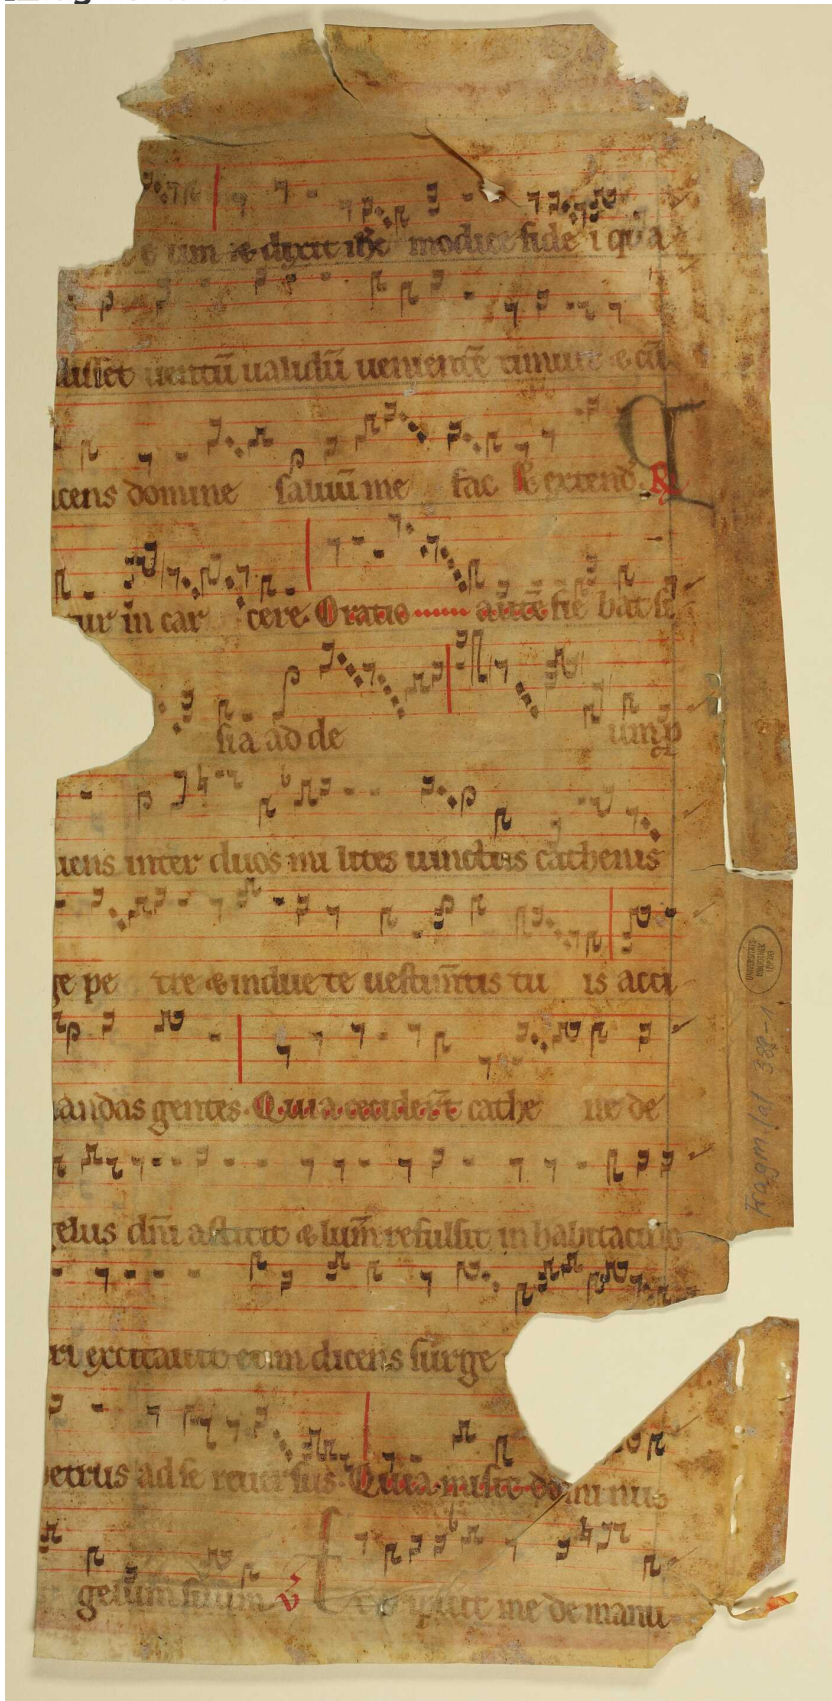 e um & dixit ihc modice fide i qua
disset uentū ualidū uenientē timuit & cū
icens domine saluū me fac Et extend. R
tur in car cere. Oratio autē fie bat si
sia ad de um p
iens inter duos mi lites uinctus cathenis
ge pe tre & indue te uestim̄tis tu is acci
andas gentes. Quia cecider̄t cathe ne de
elus dn̄i astitit & lum̄ refulsit in habitaculo
ri excitauit eum dicens surge
petrus ad se reuersus. Quia misit dominus
gelum suum V eripuit me de manu
UNIVERSITÄTS BIBLIOTHEK LEIPZIG
Fragm. lat. 382-1